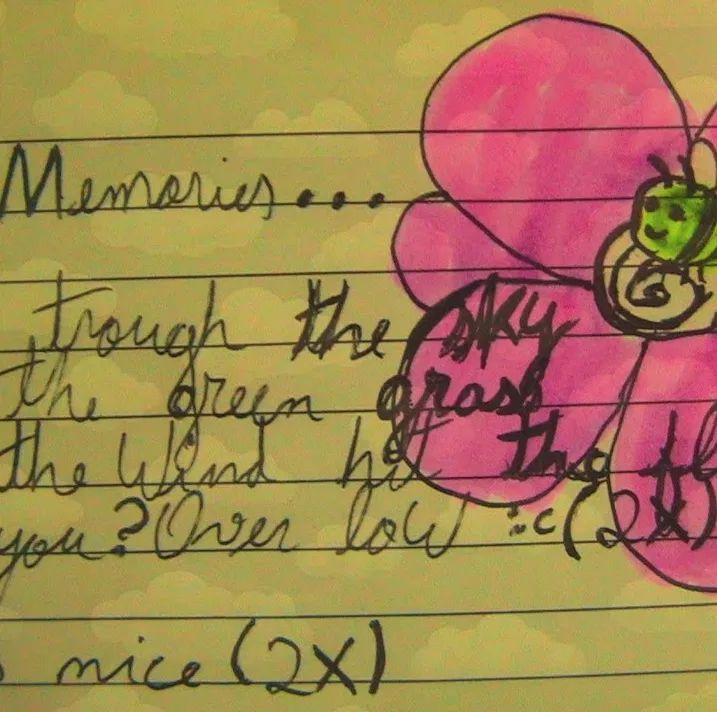 Memories...
trough the sky
the green grass
the Wind hit the
you? Over low :c (2X)
nice (2X)